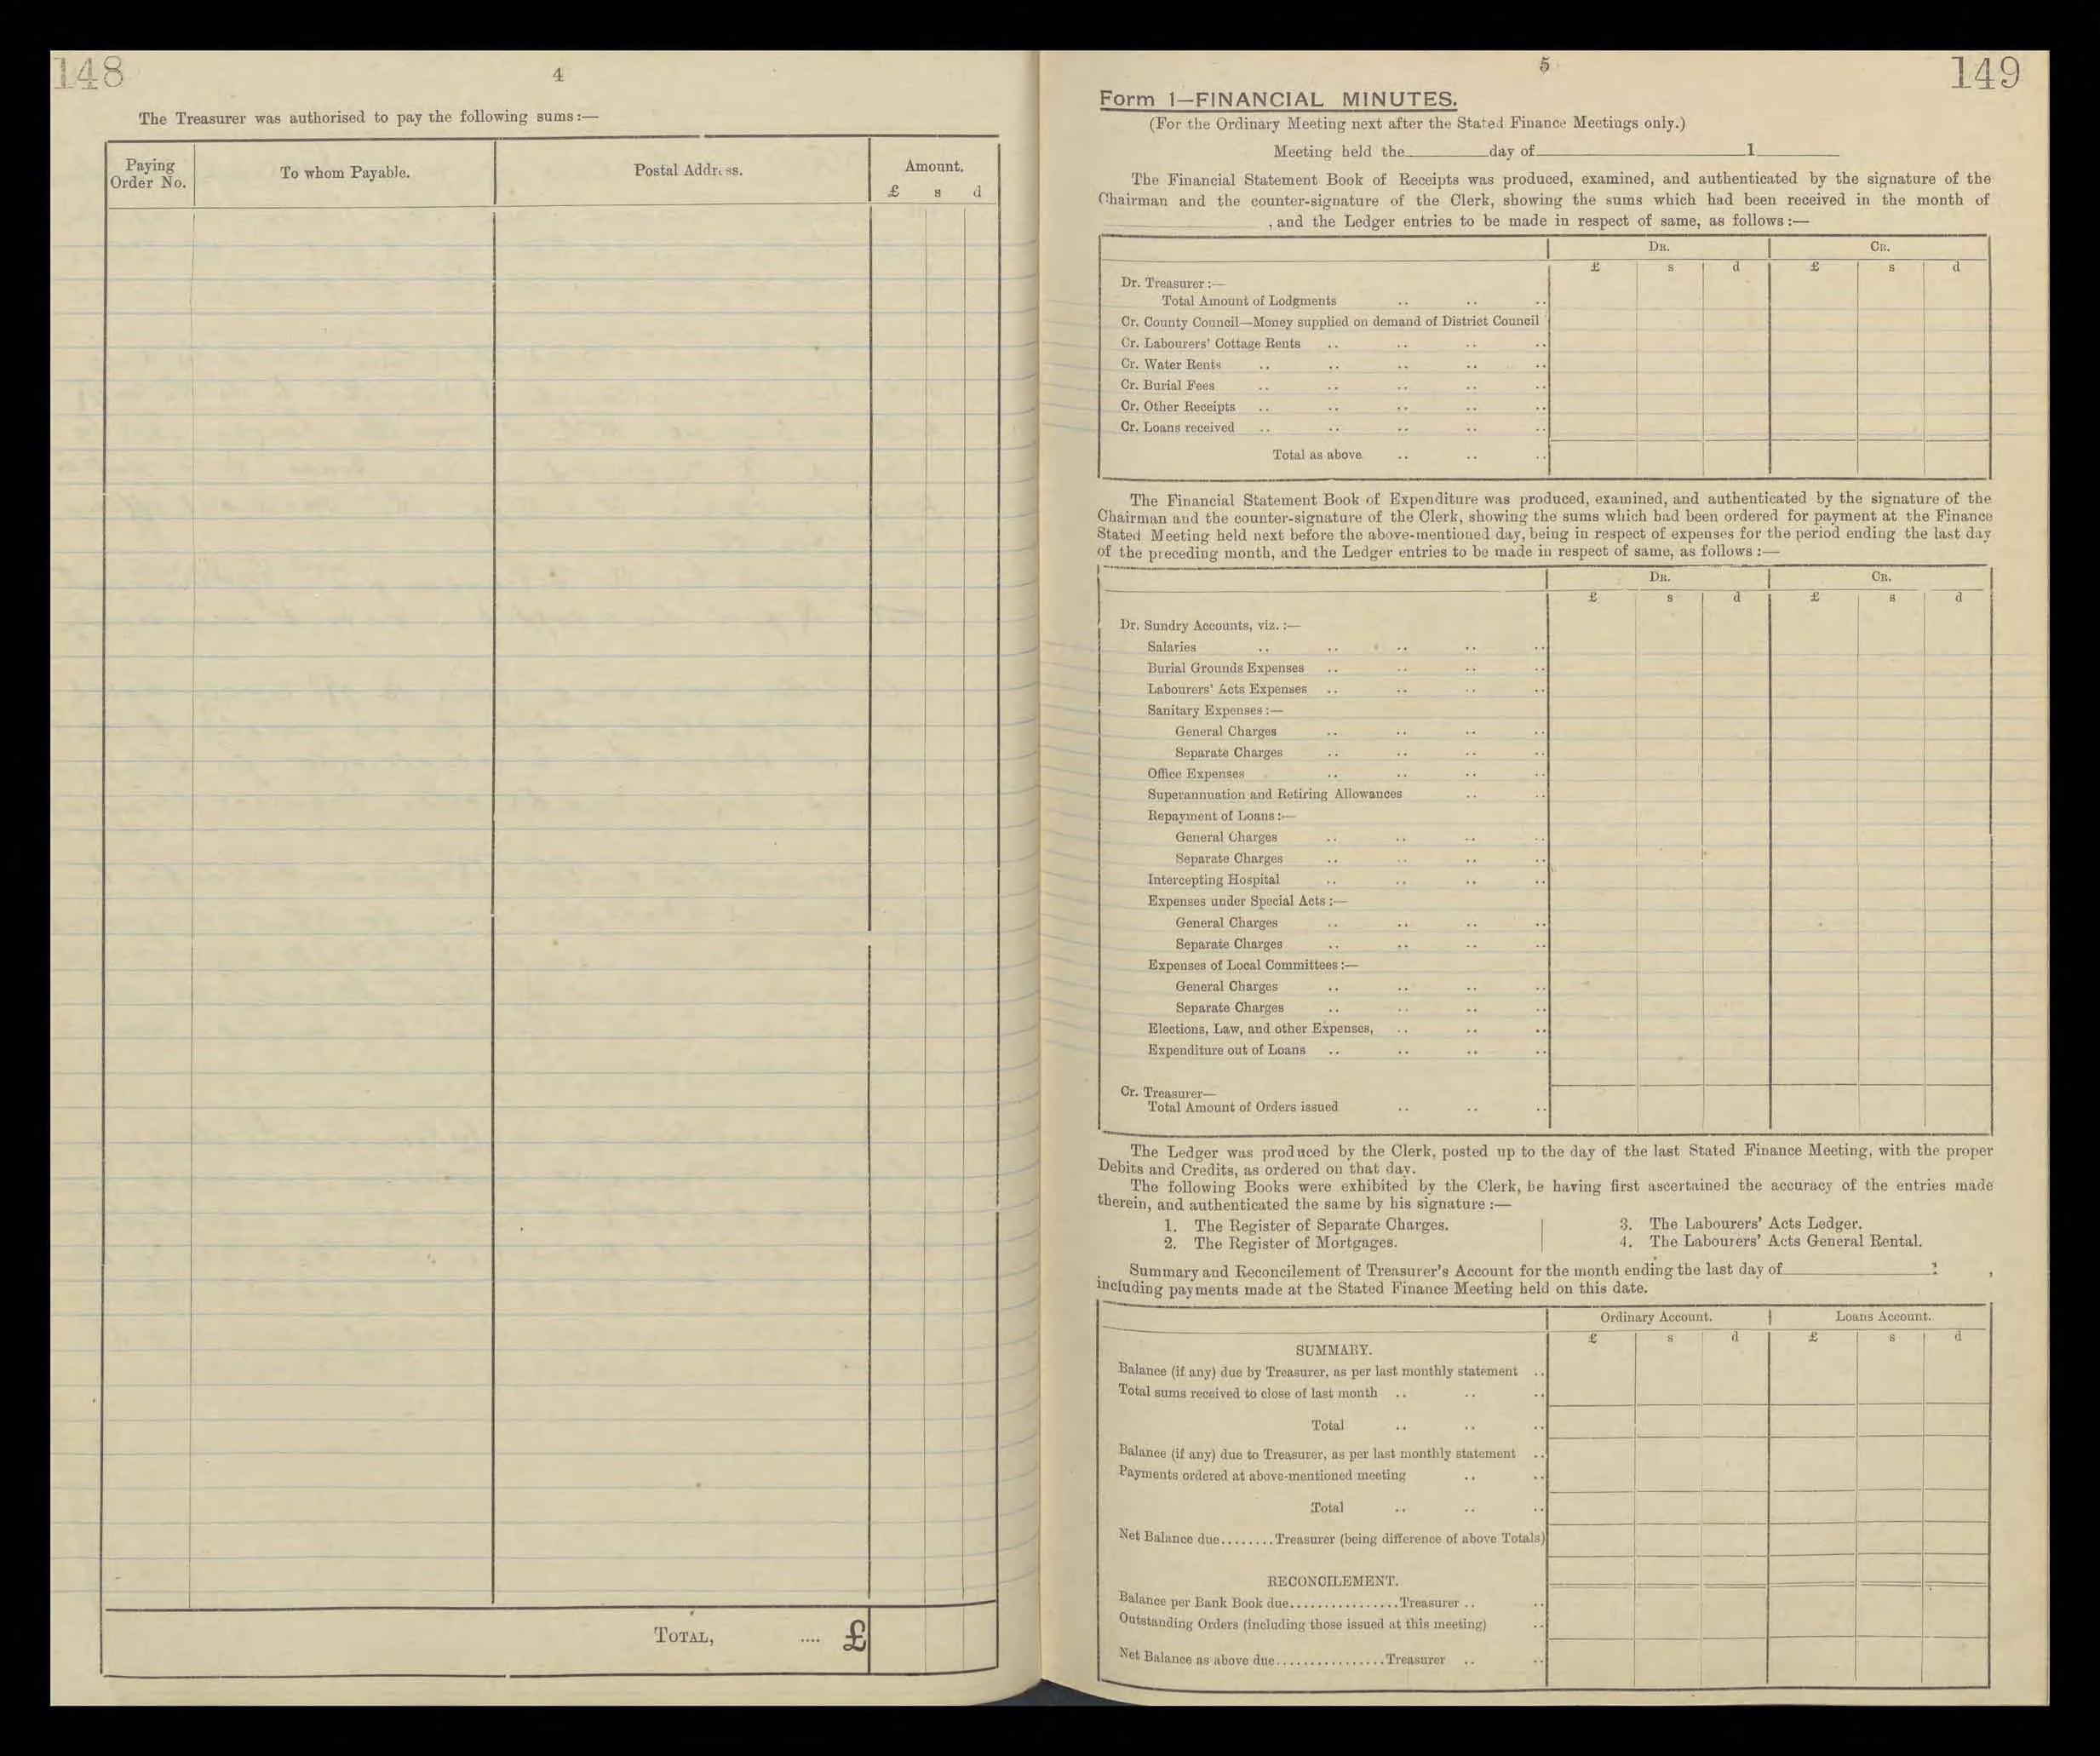 148
4
The Treasurer was authorised to pay the following sums:—
Paying Order No.
To whom Payable.
Postal Address.
Amount.
£ s d
TOTAL, .... £
5
149
Form 1—FINANCIAL MINUTES.
(For the Ordinary Meeting next after the Stated Finance Meetings only.)
Meeting held the day of 1
The Financial Statement Book of Receipts was produced, examined, and authenticated by the signature of the
Chairman and the counter-signature of the Clerk, showing the sums which had been received in the month of
, and the Ledger entries to be made in respect of same, as follows:—
DR. CR.
£ s d £ s d
Dr. Treasurer:—
Total Amount of Lodgments .. .. ..
Cr. County Council—Money supplied on demand of District Council
Cr. Labourers' Cottage Rents .. .. .. ..
Cr. Water Rents .. .. .. .. ..
Cr. Burial Fees .. .. .. .. ..
Cr. Other Receipts .. .. .. .. ..
Cr. Loans received .. .. .. .. ..
Total as above .. .. ..
The Financial Statement Book of Expenditure was produced, examined, and authenticated by the signature of the
Chairman and the counter-signature of the Clerk, showing the sums which had been ordered for payment at the Finance
Stated Meeting held next before the above-mentioned day, being in respect of expenses for the period ending the last day
of the preceding month, and the Ledger entries to be made in respect of same, as follows:—
DR. CR.
£ s d £ s d
Dr. Sundry Accounts, viz.:—
Salaries .. .. .. .. ..
Burial Grounds Expenses .. .. .. ..
Labourers' Acts Expenses .. .. .. ..
Sanitary Expenses:—
General Charges .. .. .. ..
Separate Charges .. .. .. ..
Office Expenses .. .. .. ..
Superannuation and Retiring Allowances .. ..
Repayment of Loans:—
General Charges .. .. .. ..
Separate Charges .. .. .. ..
Intercepting Hospital .. .. .. ..
Expenses under Special Acts:—
General Charges .. .. .. ..
Separate Charges .. .. .. ..
Expenses of Local Committees:—
General Charges .. .. .. ..
Separate Charges .. .. .. ..
Elections, Law, and other Expenses, .. .. ..
Expenditure out of Loans .. .. .. ..
Cr. Treasurer—
Total Amount of Orders issued .. .. ..
The Ledger was produced by the Clerk, posted up to the day of the last Stated Finance Meeting, with the proper
Debits and Credits, as ordered on that day.
The following Books were exhibited by the Clerk, he having first ascertained the accuracy of the entries made
therein, and authenticated the same by his signature:—
1. The Register of Separate Charges.
2. The Register of Mortgages.
3. The Labourers' Acts Ledger.
4. The Labourers' Acts General Rental.
Summary and Reconcilement of Treasurer's Account for the month ending the last day of 1 ,
including payments made at the Stated Finance Meeting held on this date.
Ordinary Account. Loans Account.
£ s d £ s d
SUMMARY.
Balance (if any) due by Treasurer, as per last monthly statement ..
Total sums received to close of last month .. .. ..
Total .. .. ..
Balance (if any) due to Treasurer, as per last monthly statement ..
Payments ordered at above-mentioned meeting .. ..
Total .. .. ..
Net Balance due........Treasurer (being difference of above Totals)
RECONCILEMENT.
Balance per Bank Book due................Treasurer .. ..
Outstanding Orders (including those issued at this meeting) ..
Net Balance as above due................Treasurer .. ..